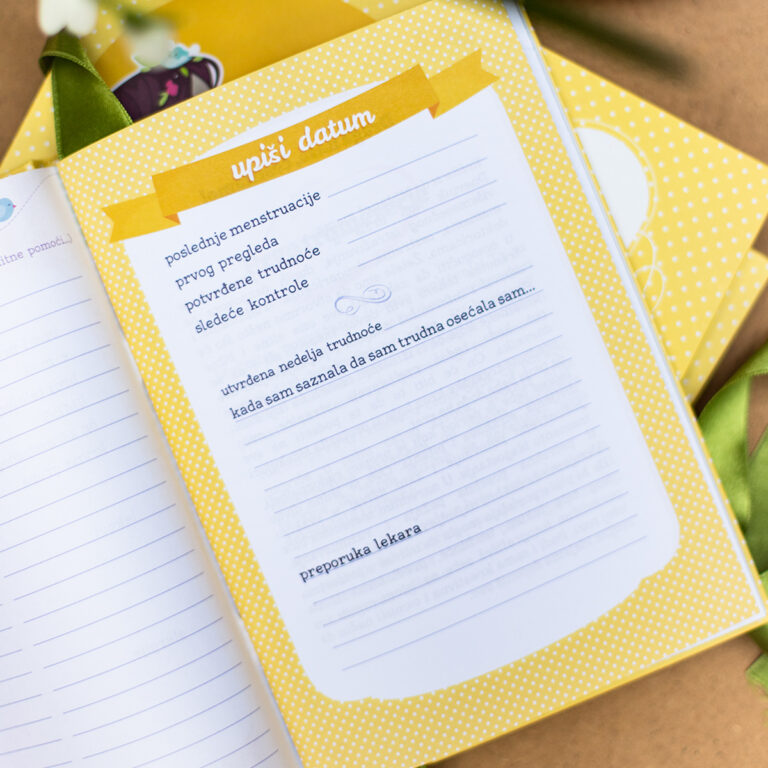 upiši datum
poslednje menstruacije
prvog pregleda
potvrđene trudnoće
sledeće kontrole
utvrđena nedelja trudnoće
kada sam saznala da sam trudna osećala sam...
preporuka lekara
pomoći..)